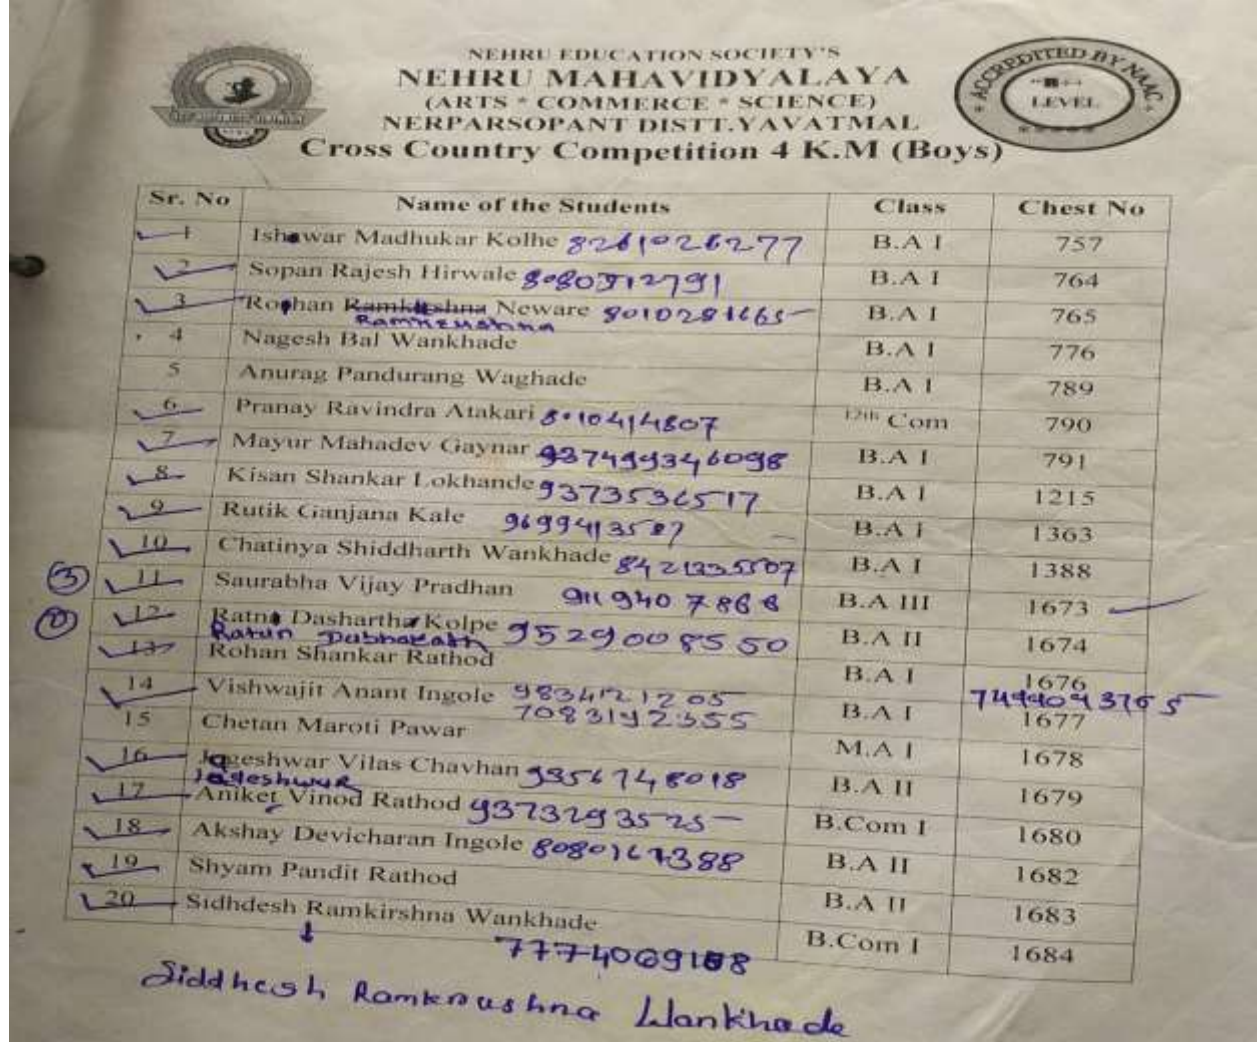 NEHRU EDUCATION SOCIETY'S
NEHRU MAHAVIDYALAYA
(ARTS * COMMERCE * SCIENCE)
NERPARSOPANT DISTT.YAVATMAL
Cross Country Competition 4 K.M (Boys)
ACCREDITED BY NAAC
LEVEL
Sr. No Name of the Students Class Chest No
1 Ishawar Madhukar Kolhe 8261026277 B.A I 757
2 Sopan Rajesh Hirwale B.A I 764
3 Roshan Ramkirshna Neware 8010281665 B.A I 765
Ramkrushna
4 Nagesh Bal Wankhade B.A I 776
5 Anurag Pandurang Waghade B.A I 789
6 Pranay Ravindra Atakari 8010414807 12th Com 790
7 Mayur Mahadev Gaynar B.A I 791
8 Kisan Shankar Lokhande 9373536517 B.A I 1215
9 Rutik Ganjana Kale 9699413587 B.A I 1363
10 Chatinya Shiddharth Wankhade B.A I 1388
3 11 Saurabha Vijay Pradhan B.A III 1673
12 Ratna Dashartha Kolpe 9529008550 B.A II 1674
Ratan
13 Rohan Shankar Rathod B.A I 1676
14 Vishwajit Anant Ingole 9834121205 B.A I 1677
7083192355
15 Chetan Maroti Pawar M.A I 1678
16 Jageshwar Vilas Chavhan 9356748018 B.A II 1679
Jageshwar
17 Aniket Vinod Rathod 9373293525 B.Com I 1680
18 Akshay Devicharan Ingole B.A II 1682
19 Shyam Pandit Rathod B.A II 1683
20 Sidhdesh Ramkirshna Wankhade B.Com I 1684
Siddhesh Ramkrushna Wankhade